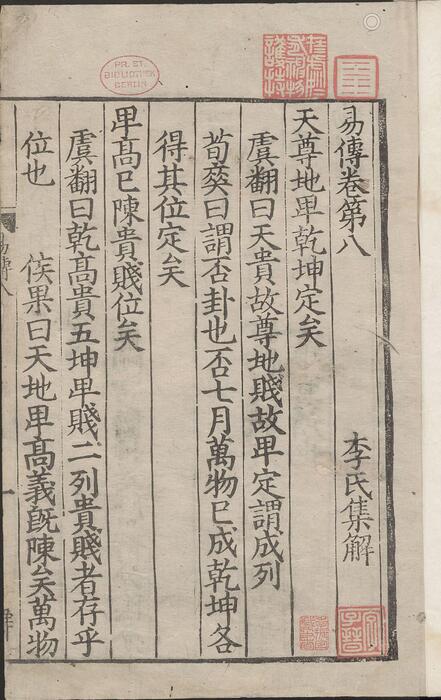 易傳卷第八 李氏集解
天尊地卑乾坤定矣
虞翻曰天貴故尊地賤故卑定謂成列
荀爽曰謂否卦也否七月萬物已成乾坤各
得其位定矣
卑高已陳貴賤位矣
虞翻曰乾高貴五坤卑賤二列貴賤者存乎
位也 侯果曰天地卑高義旣陳矣萬物
易傳八
一
PR. ST.
BIBLIOTHEK
BERLIN